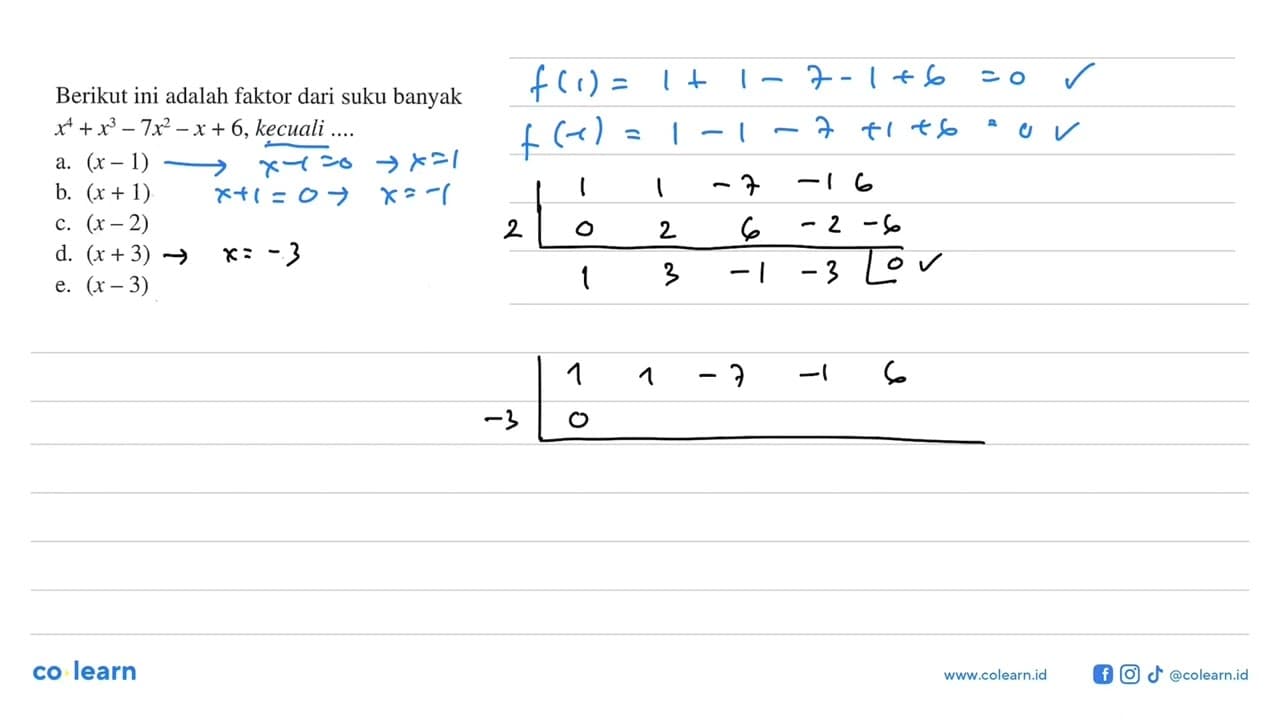 Berikut ini adalah faktor dari suku banyak
x⁴ + x³ – 7x² – x + 6, kecuali ....
a. (x – 1) → x-1=0 → x=1
b. (x + 1) x+1=0 → x=-1
c. (x – 2)
d. (x + 3) → x=-3
e. (x – 3)
f(1) = 1 + 1 - 7 - 1 + 6 = 0 ✓
f(-1) = 1 - 1 - 7 + 1 + 6 = 0 ✓
1 1 -7 -1 6
2 0 2 6 -2 -6
1 3 -1 -3 0 ✓
1 1 -7 -1 6
-3 0
co learn
www.colearn.id
@colearn.id